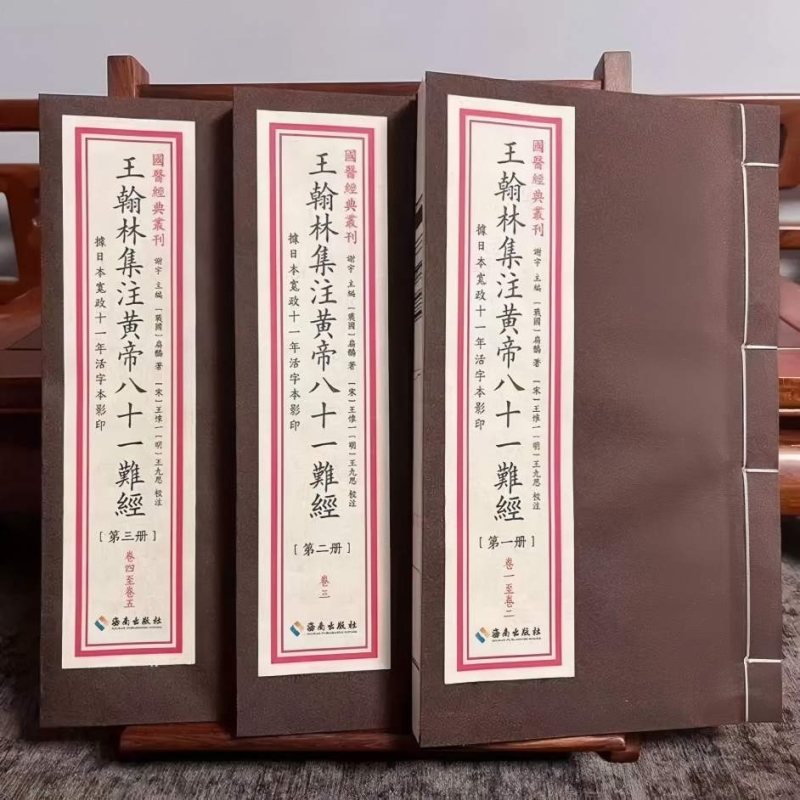 國醫經典叢刊
謝宇 主編 [戰國]扁鵲 著 [宋]王惟一[明]王九思 校注
王翰林集注黄帝八十一難經
據日本寬政十一年活字本影印
[第一册]
卷一至卷二
海南出版社
國醫經典叢刊
謝宇 主編 [戰國]扁鵲 著 [宋]王惟一[明]王九思 校注
王翰林集注黄帝八十一難經
據日本寬政十一年活字本影印
[第二册]
卷三
海南出版社
國醫經典叢刊
謝宇 主編 [戰國]扁鵲 著 [宋]王惟一[明]王九思 校注
王翰林集注黄帝八十一難經
據日本寬政十一年活字本影印
[第三册]
卷四至卷五
海南出版社